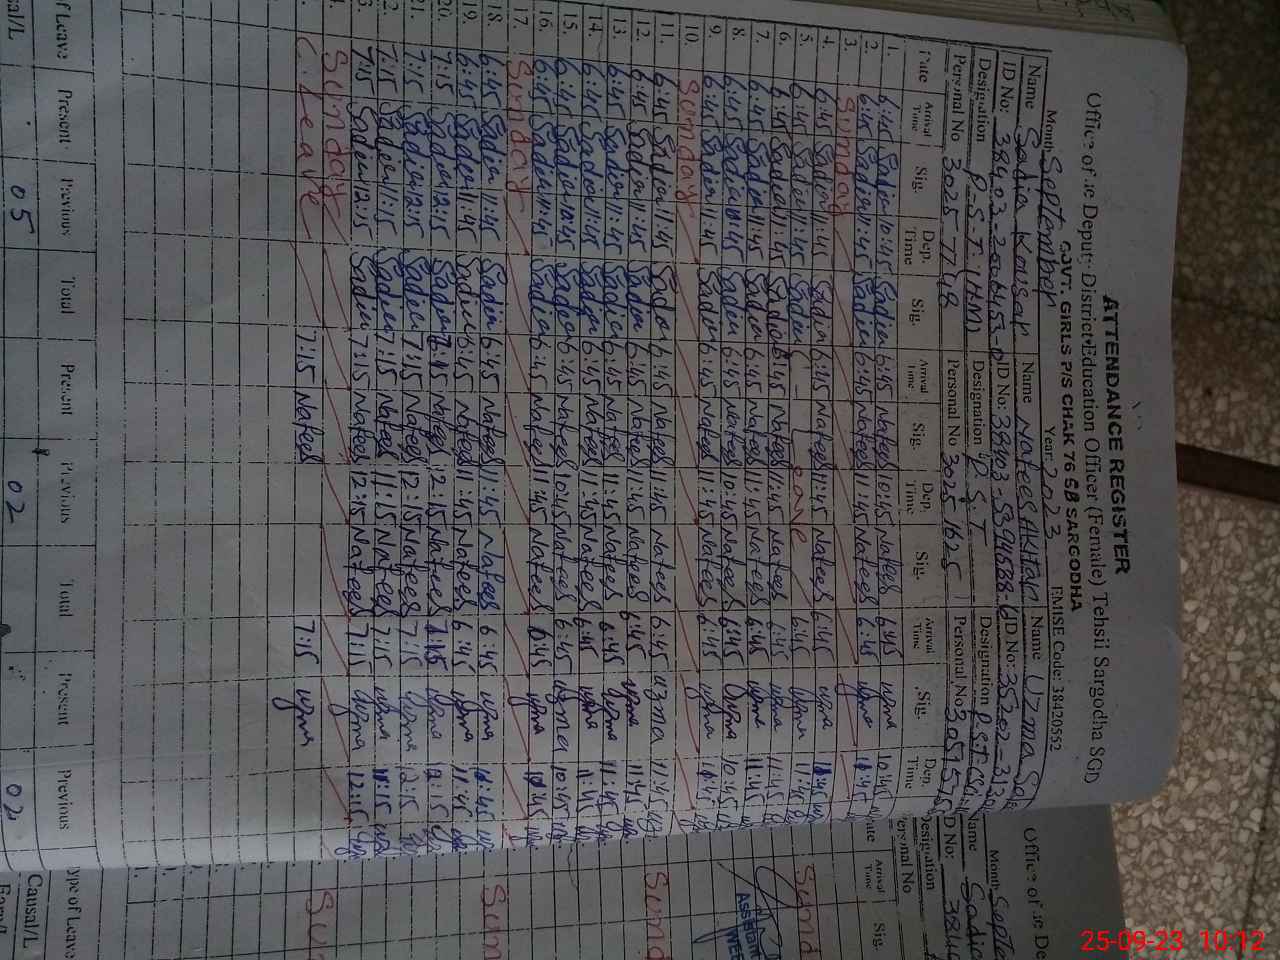 ATTENDANCE REGISTER
Office of Deputy District Education Officer (Female) Tehsil Sargodha SGD
GOVT. GIRLS P/S CHAK 76 SB SARGODHA
Month: September Year: 2023 EMISE Code: 38420552
Name Sadia Kausar Name Nafees Akhtar Name Uzma
ID No: 38403- ID No: 38403- ID No: 35202-313
Designation P.S.T. (H.M) Designation P.S.T Designation P.S.T
Personal No 30257748 Personal No 30251625 Personal No 3059575
Date Arrival Time Sig. Dep. Time Sig. Arrival Time Sig. Dep. Time Sig. Arrival Time Sig. Dep. Time
1. 6:45 Sadia 10:45 Sadia 6:45 Nafees 10:45 Nafees 6:45 uzma 10:45
2. 6:45 Sadia 11:45 Sadia 6:45 Nafees 11:45 Nafees 6:45 uzma 11:45
3. Sunday
4. 6:45 Sadia 11:45 Sadia 6:45 Nafees 11:45 Nafees 6:45 uzma 11:45
5. 6:45 Sadia 11:45 Sadia C-Leave 6:45 uzma 11:45
6. 6:45 Sadia 11:45 Sadia 6:45 Nafees 11:45 Nafees 6:45 uzma 11:45
7. 6:45 Sadia 11:45 Sadia 6:45 Nafees 11:45 Nafees 6:45 uzma 11:45
8. 6:45 Sadia 10:45 Sadia 6:45 Nafees 10:45 Nafees 6:45 uzma 10:45
9. 6:45 Sadia 11:45 Sadia 6:45 Nafees 11:45 Nafees 6:45 uzma 11:45
10. Sunday
11. 6:45 Sadia 11:45 Sadia 6:45 Nafees 11:45 Nafees 6:45 uzma 11:45
12. 6:45 Sadia 11:45 Sadia 6:45 Nafees 11:45 Nafees 6:45 uzma 11:45
13. 6:45 Sadia 11:45 Sadia 6:45 Nafees 11:45 Nafees 6:45 uzma 11:45
14. 6:45 Sadia 11:45 Sadia 6:45 Nafees 11:45 Nafees 6:45 uzma 11:45
15. 6:45 Sadia 10:45 Sadia 6:45 Nafees 10:45 Nafees 6:45 uzma 10:45
16. 6:45 Sadia 11:45 Sadia 6:45 Nafees 11:45 Nafees 6:45 uzma 11:45
17. Sunday
18. 6:45 Sadia 11:45 Sadia 6:45 Nafees 11:45 Nafees 6:45 uzma 11:45
19. 6:45 Sadia 11:45 Sadia 6:45 Nafees 11:45 Nafees 6:45 uzma 11:45
20. 7:15 Sadia 12:15 Sadia 7:15 Nafees 12:15 Nafees 7:15 uzma 12:15
21. 7:15 Sadia 12:15 Sadia 7:15 Nafees 12:15 Nafees 7:15 uzma 12:15
7:15 Sadia 11:15 Sadia 7:15 Nafees 11:15 Nafees 7:15 uzma 11:15
7:15 Sadia 12:15 Sadia 7:15 Nafees 12:15 Nafees 7:15 uzma 12:15
Sunday
C-Leave 7:15 Nafees 7:15 uzma
of Leave Present Previous Total Present Previous Total Present Previous
05 02 02
Type of Leave
Causal/L
Office of
Month: Septe
Name Sadia
ID No: 384
Designation
Personal No
Arrival Time Sig.
Sund
Assistant
Sund
Sun
Su
25-09-23 10:12